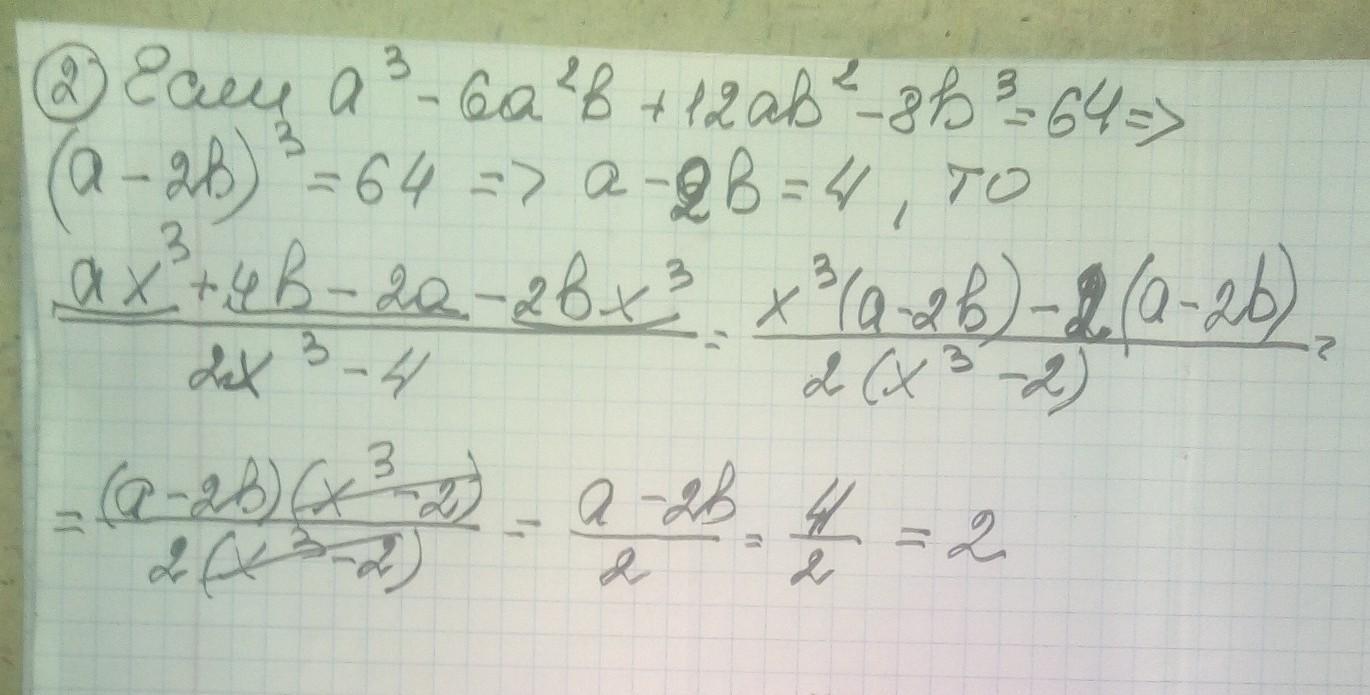 ② Если a³ - 6a²b + 12ab² - 8b³ = 64 =>
(a - 2b)³ = 64 => a - 2b = 4, то
(ax³ + 4b - 2a - 2bx³)/(2x³ - 4) = (x³(a - 2b) - 2(a - 2b))/(2(x³ - 2)) =
= ((a - 2b)(x³ - 2))/(2(x³ - 2)) = (a - 2b)/2 = 4/2 = 2